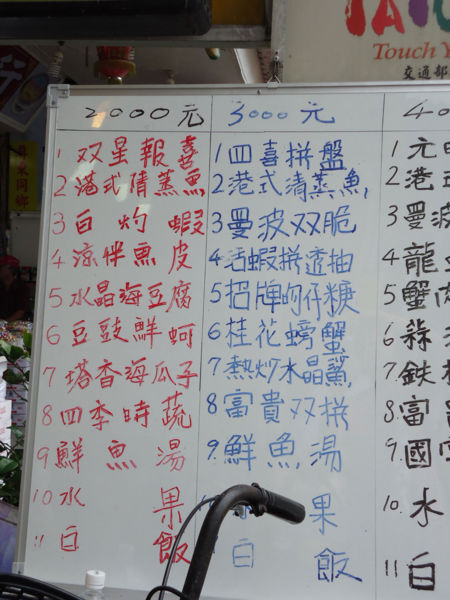 Touch Y
交通部
2000元
1 双星報喜
2 港式清蒸魚
3 白灼蝦
4 涼伴魚皮
5 水晶海豆腐
6 豆豉鮮蚵
7 塔香海瓜子
8 四季時蔬
9 鮮魚湯
10 水果
11 白飯
3000元
1 四喜拼盤
2 港式清蒸魚
3 曼波双脆
4 活蝦拼透抽
5 招牌蚵仔糠
6 桂花螃蟹
7 熱炒水晶鯊
8 富貴双拼
9. 鮮魚湯
果
白飯
40
1 元
2 港
3 曼波
4 龍
5 蟹肉
6
7. 鉄
8 富
9. 國
10. 水
11 白